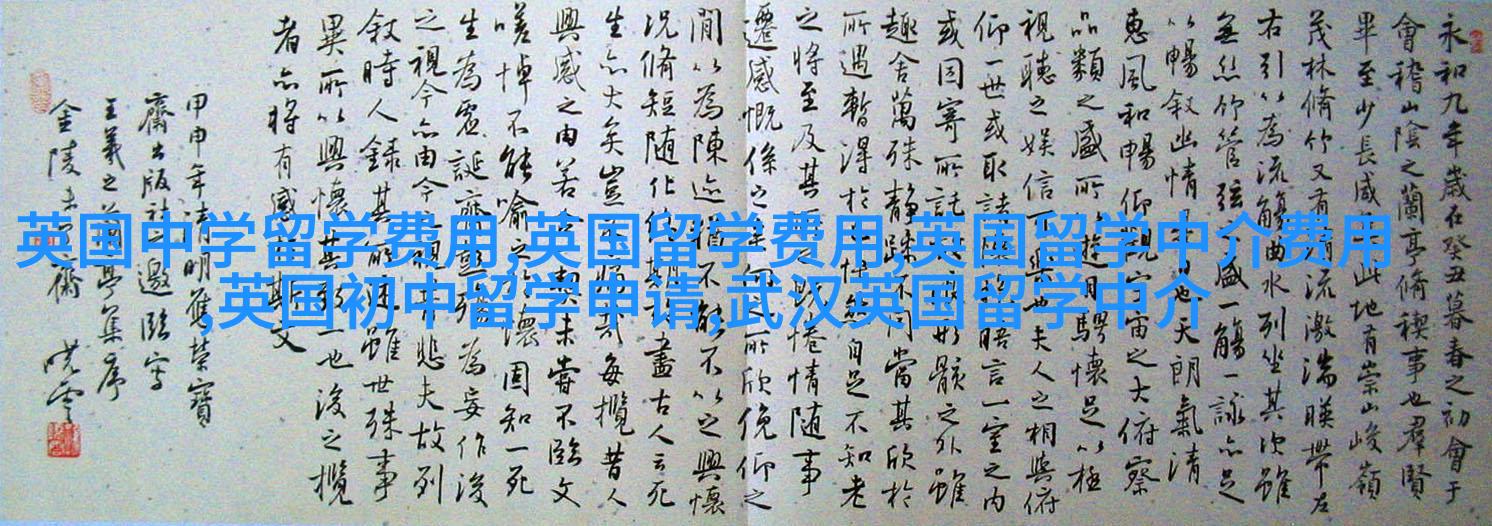 永和九年歲在癸丑暮春之初會于
會稽山陰之蘭亭脩稧事也羣賢
畢至少長咸此地有崇山峻嶺
茂林脩竹又有流激湍暎帶左
右引以為流觴曲水列坐其次雖
無絲竹管弦之盛一觴一詠亦足
以暢敘幽情也天朗氣清
惠風和暢仰觀宇宙之大俯察
品類之盛所遊目騁懷足以極
視聽之娛信可樂也夫人之相與俯
仰一世或取諸懷抱悟言一室之内
或因寄所託放浪形骸之外雖
趣舍萬殊靜躁不同當其欣於
所遇暫得於己快然自足不知老
之將至及其所之既惓情隨事
遷感慨係之矣向之所欣俛仰之
間以為陳迹猶不能不以之興懷
況脩短隨化終期於盡古人云死
生亦大矣豈不痛哉每攬昔人
興感之由若合一契未嘗不臨文
嗟悼不能喻之於懷固知一死
生為虛誕齊彭殤為妄作後
之視今亦由今之視昔悲夫故列
敘時人錄其所述雖世殊事
異所以興懷其致一也後之攬
者亦將有感於斯文
甲申年清明應榮寶
齋出版社之邀臨寫
王羲之蘭亭集序
金陵齋
英国中学留学费用,英国留学费用,英国留学中介费用
,英国初中留学申请,武汉英国留学中介